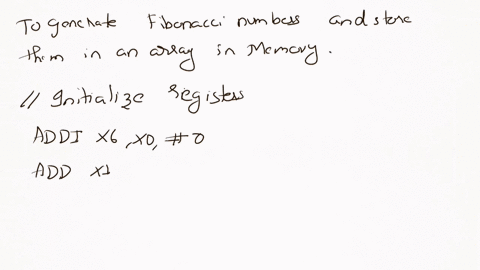 To generate Fibonacci numbers and store
them in an array in Memory.
// Initialize Registers
ADDI X6, X0, #0
ADD X1